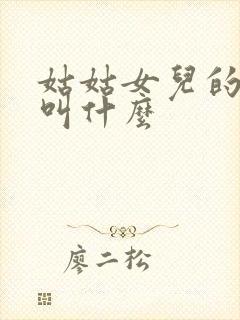 姑姑女兒的
叫什麼
廖二松